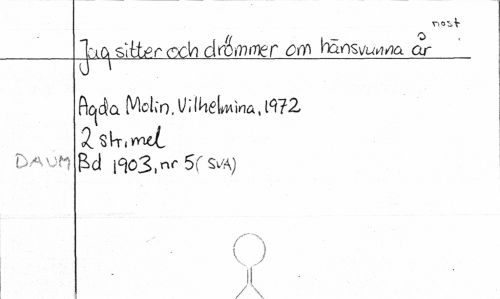 nost
Jag sitter och drömmer om hänsvunna år
Agda Molin, Vilhelmina, 1972
2 str, mel
DAUM Bd 1903, nr 5 (SVA)